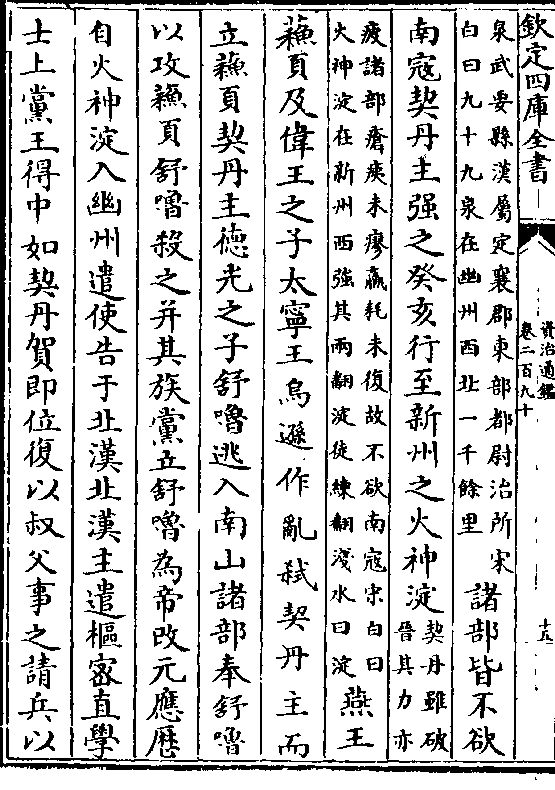 欽定四庫全書
資治通鑑
卷二百九十
十五
泉武要縣漢屬定襄郡東部都尉治所宋
白曰九十九泉在幽州西北一千餘里
諸部皆不欲
南寇契丹主强之癸亥行至新州之火神淀
契丹雖破
晉其力亦
疲諸部瘡痍未廖羸耗未復故不欲南寇宋白曰
火神淀在新州西強其兩翻淀徒練翻淺水曰淀
燕王
蘓頁及偉王之子太寧王烏遜作亂弑契丹主而
立蘓頁契丹主德光之子舒嚕逃入南山諸部奉舒嚕
以攻蘓頁舒嚕殺之并其族黨立舒嚕為帝改元應厯
自火神淀入幽州遣使告于北漢北漢主遣樞宻直學
士上黨王得中如契丹賀即位復以叔父事之請兵以